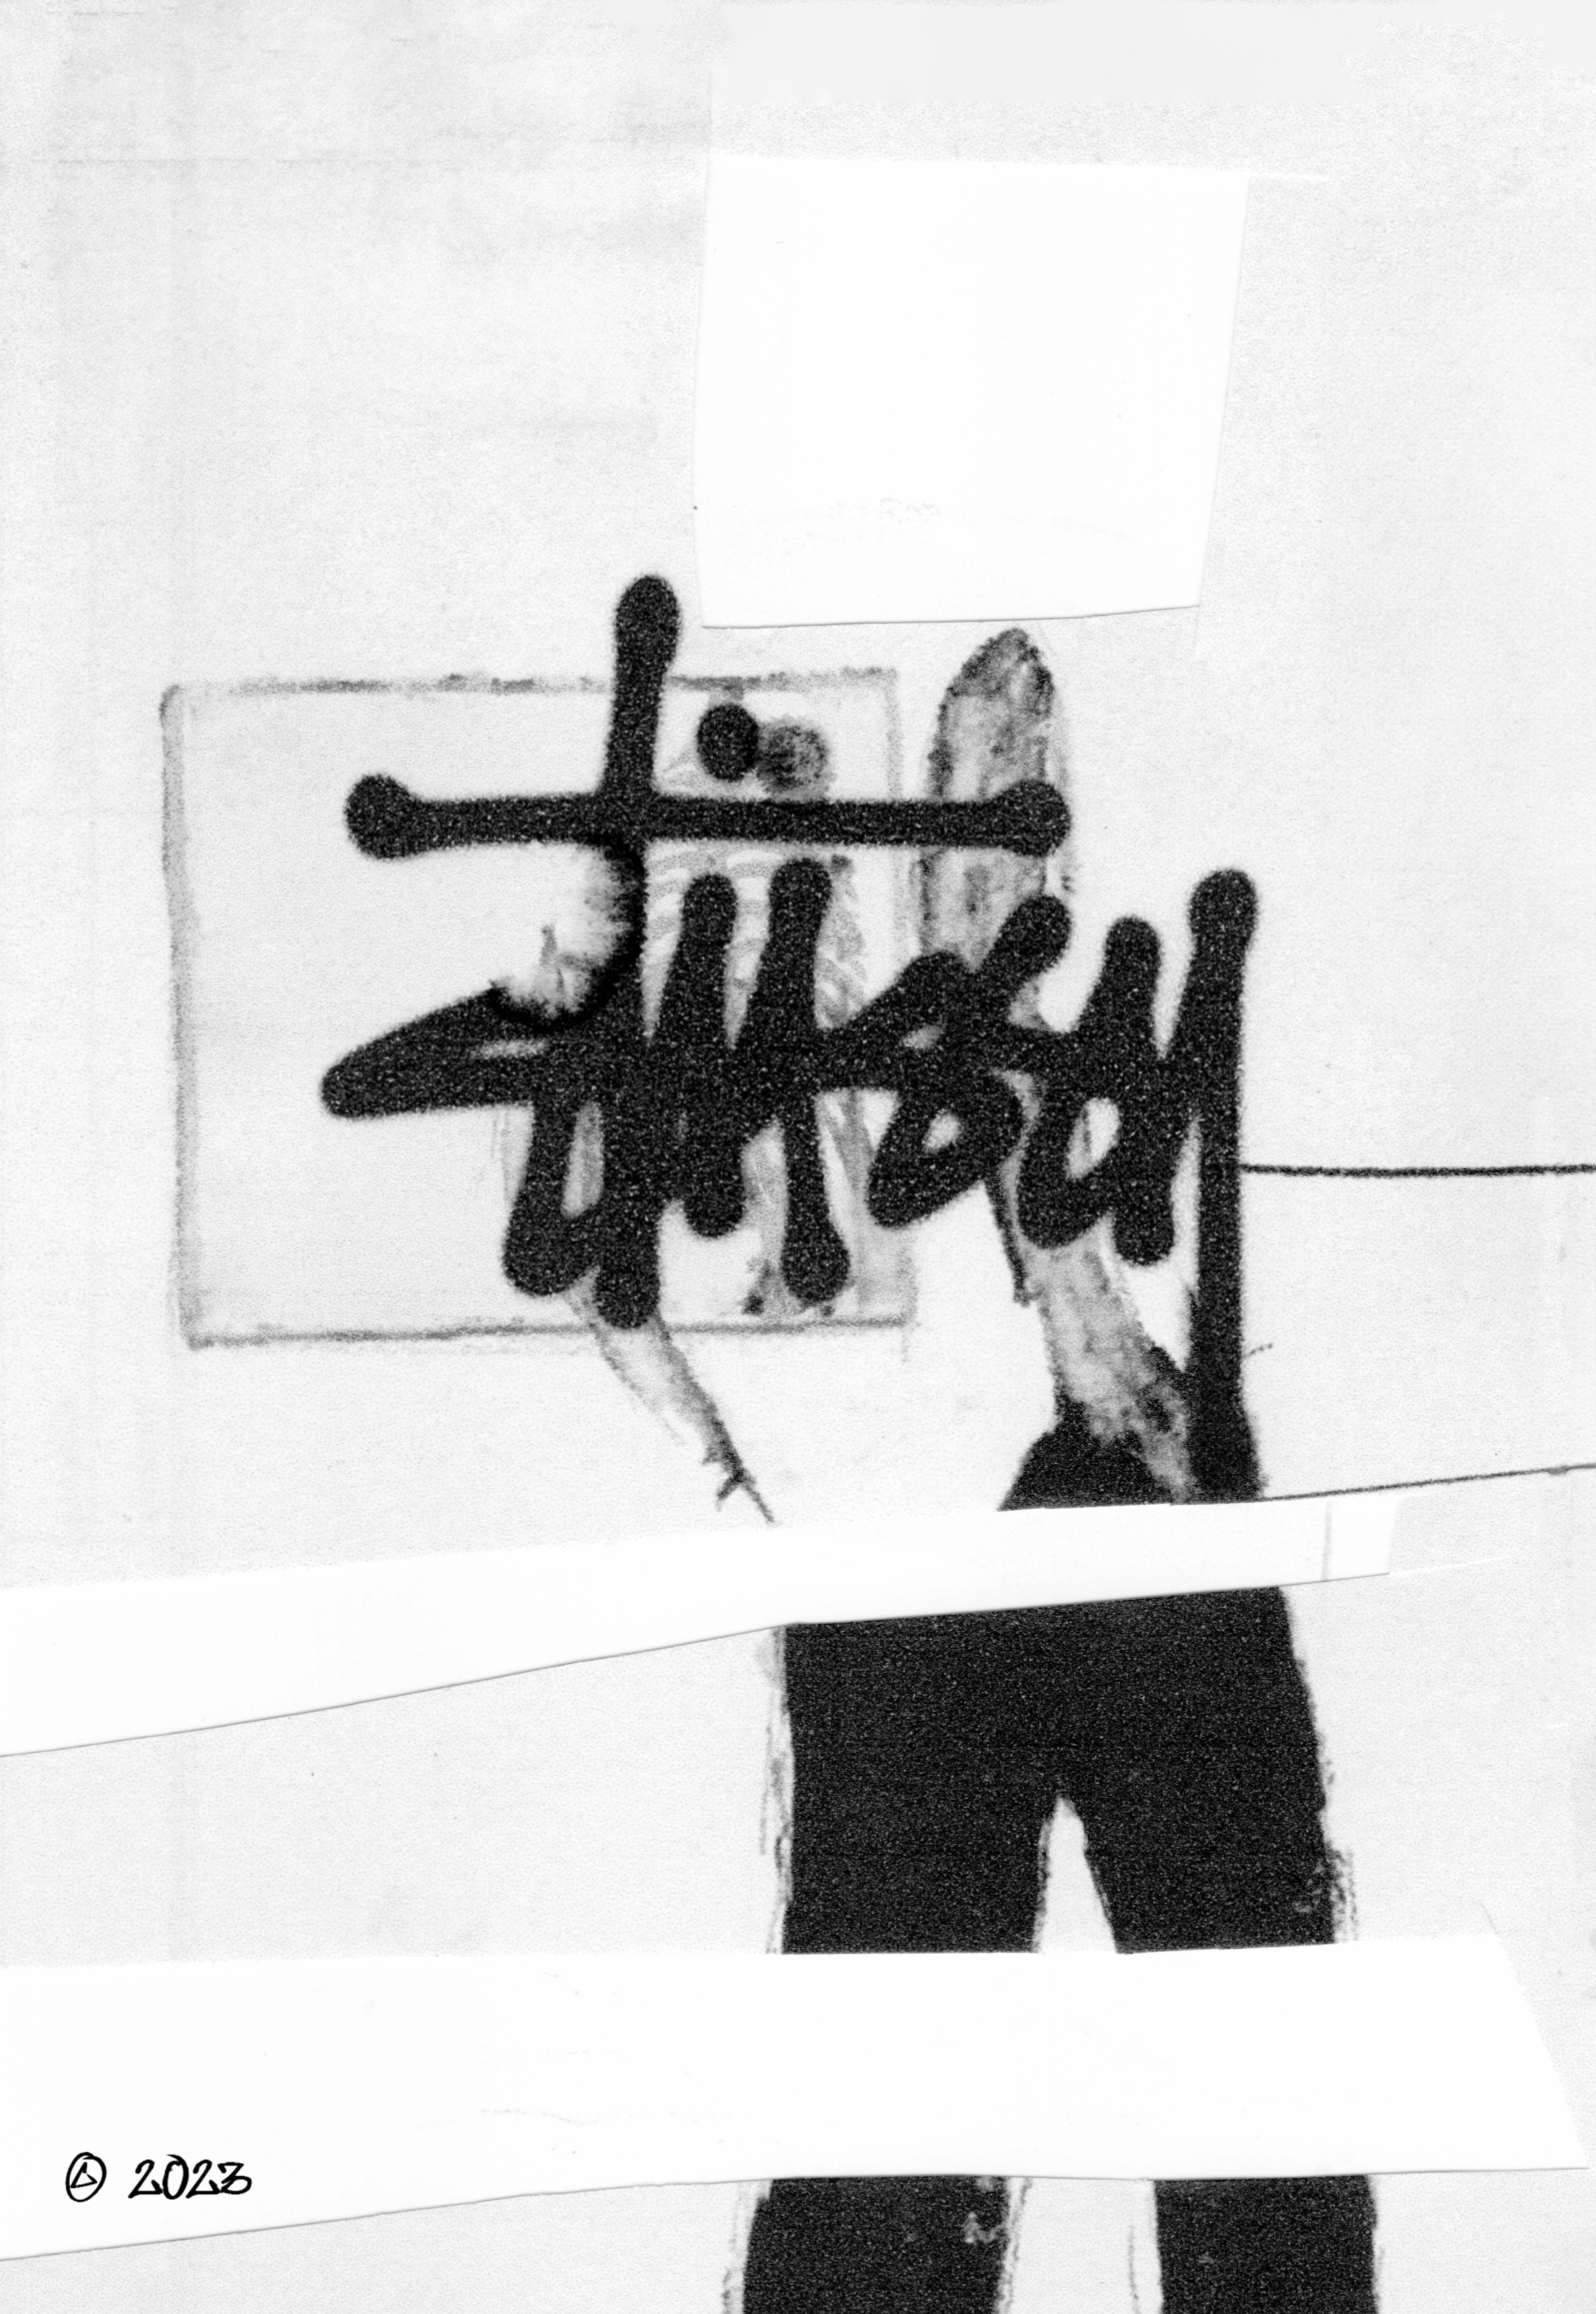 Stüssy
© 2023